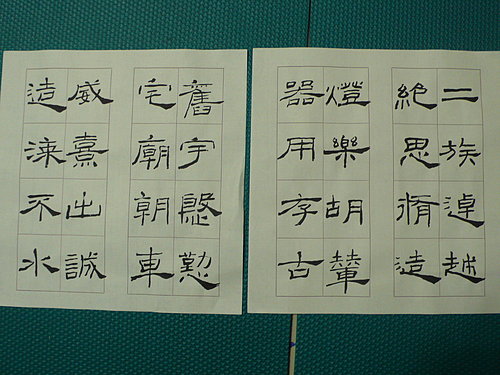 二族逴越
絕思脩造
燈樂胡輦
器用存古
舊宇慇懃
宅廟朝車
威熹出誠
造涑不水